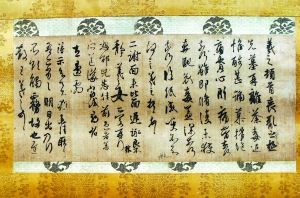 羲之頓首喪亂之極
先墓再離荼毒追
惟酷甚號慕摧絕
痛貫心肝痛當奈何
奈何雖即脩復未獲
奔馳哀毒益深奈何
奈何臨紙感哽不知
何言羲之頓首頓首
二謝面未比面遲詠良
不靜羲之女愛再拜
想邵兒悉佳前患者善
左邊劇
得示知足下猶未佳耿耿
吾亦劣劣明日出乃行
不欲觸霧故也遲散
王羲之頓首